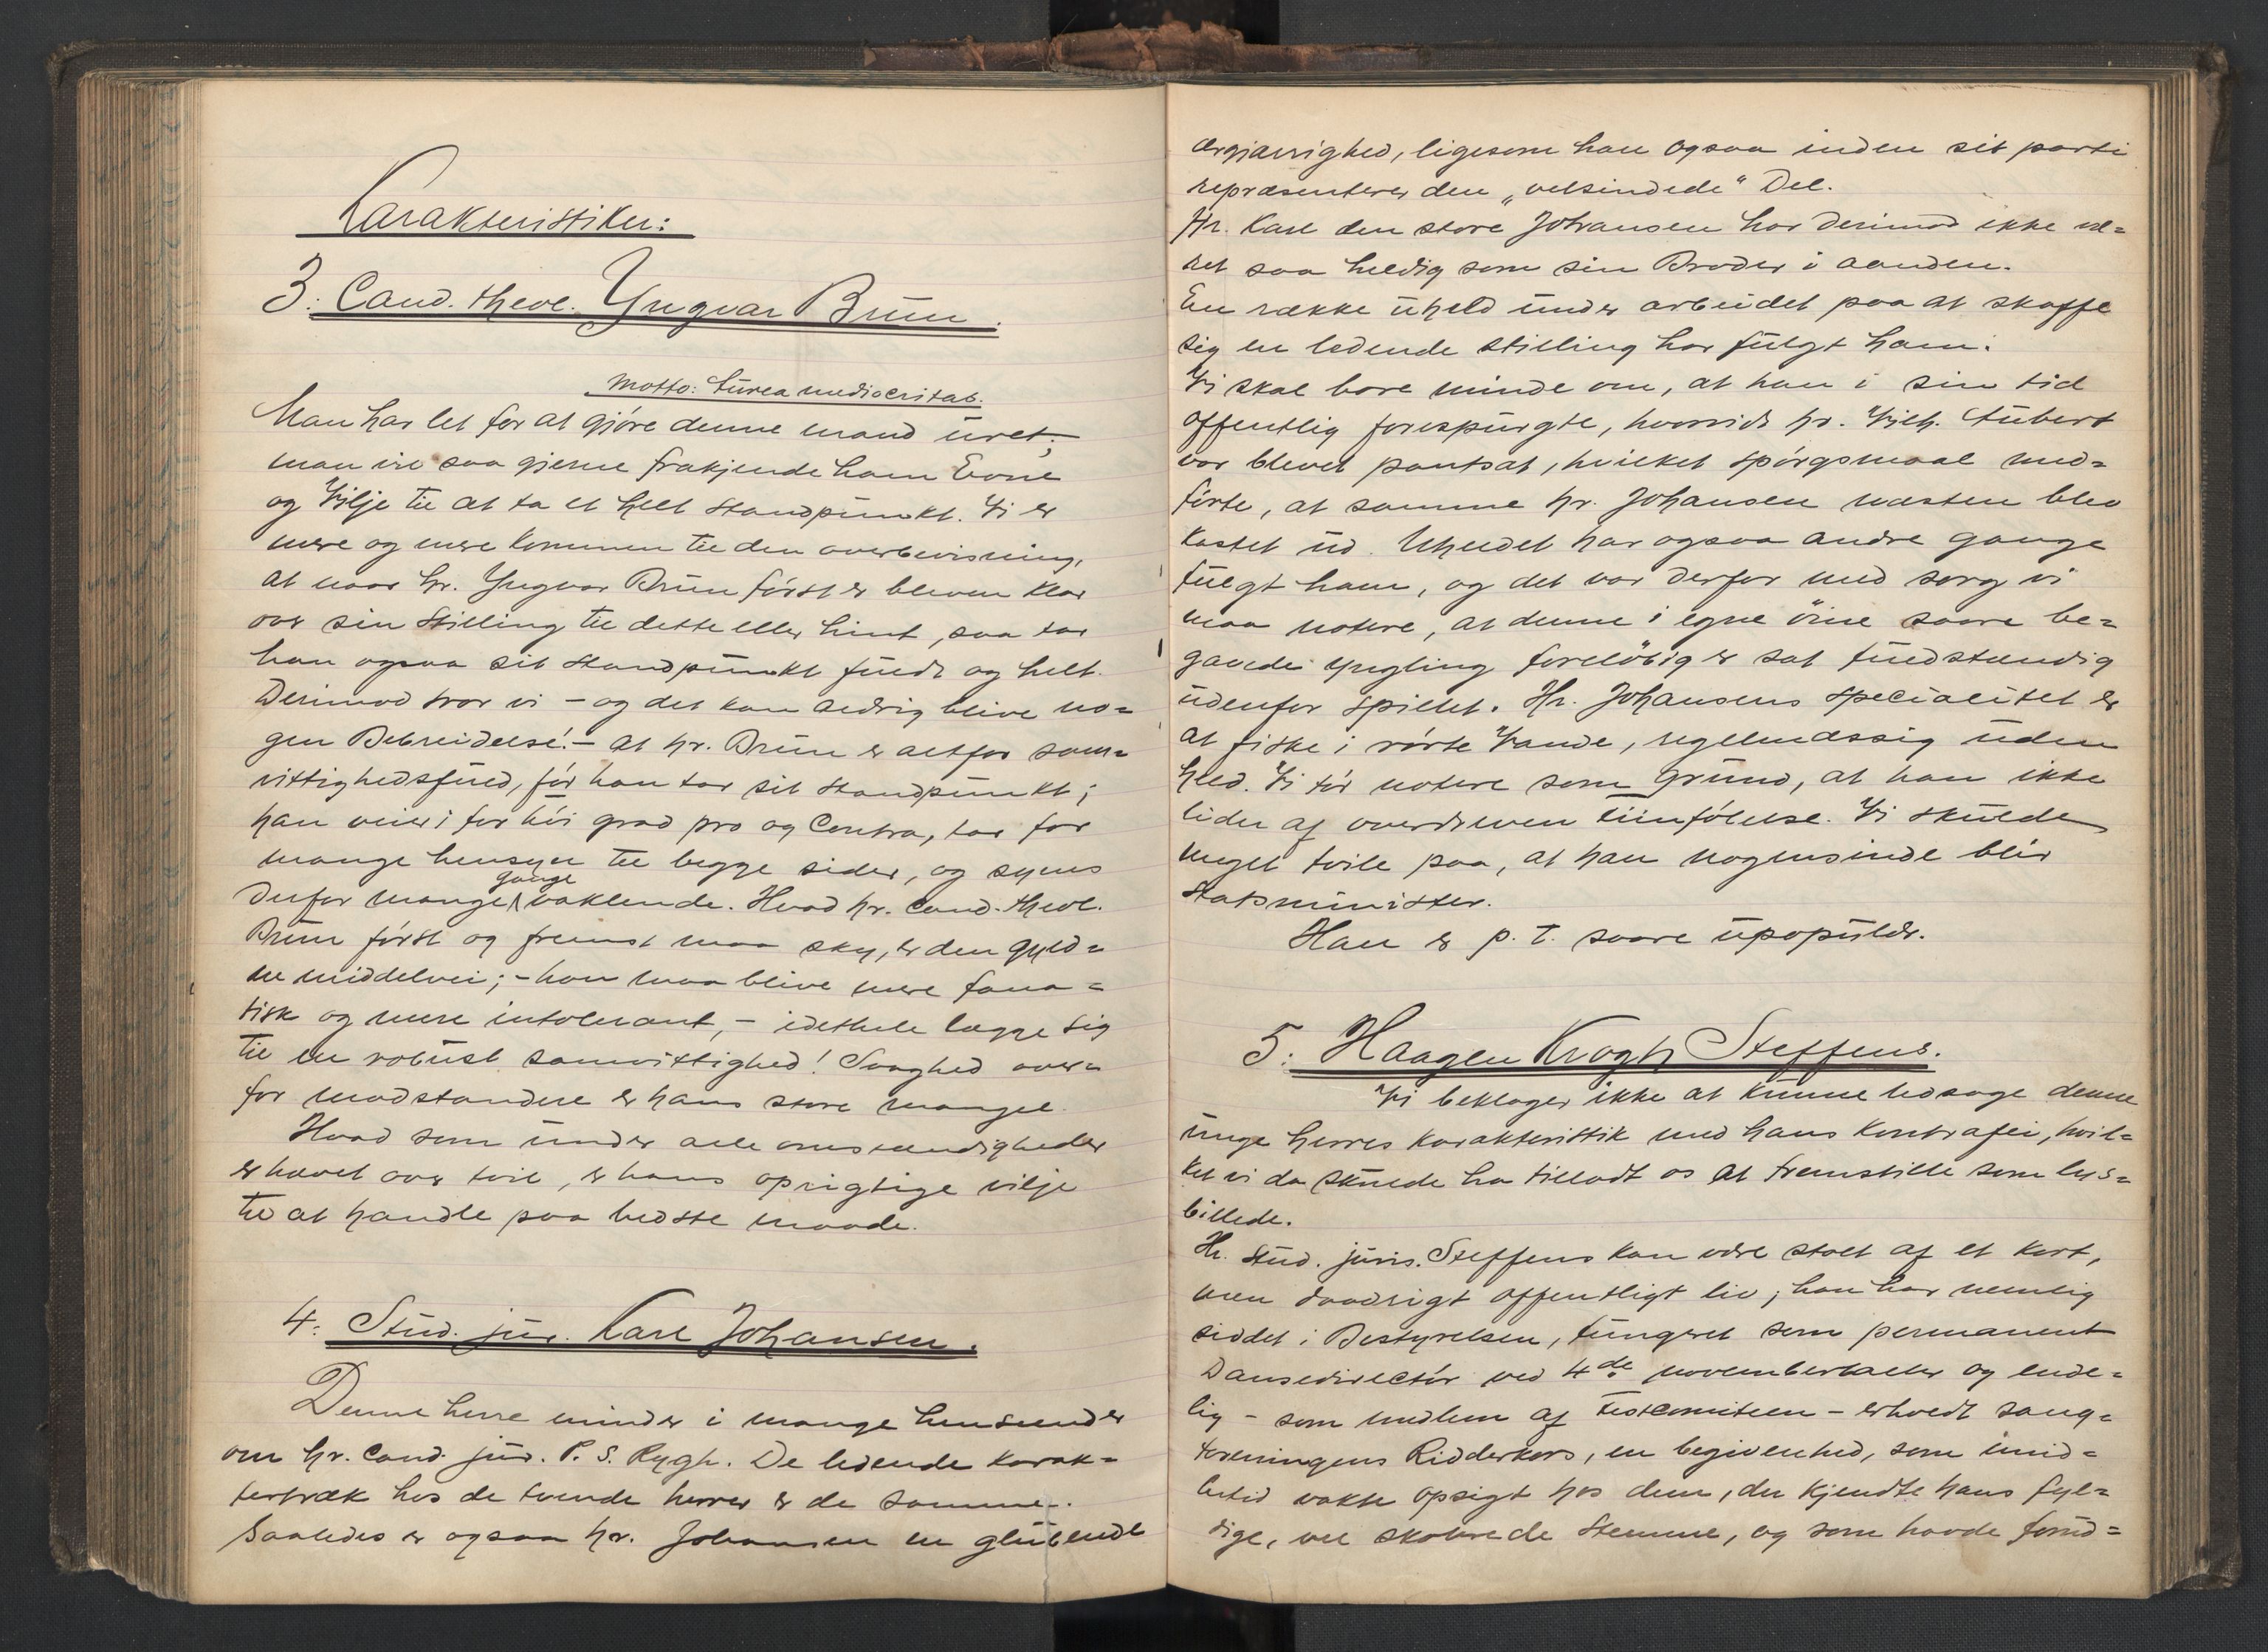 Karakteristiker:
3: Cand. theol. Yngvar Brun.
Motto: Aurea mediocritas.
Man har let for at gjøre denne mand uret;
man vil saa gjerne frakjende ham Evne
og Vilje til at ta et helt standpunkt. Vi er
mere og mere kommen til den overbevisning,
at naar hr. Yngvar Brun først er bleven klar
over sin Stilling til dette eller hint, saa tar
han ogsaa sit standpunkt fuldt og helt.
Derimod tror vi – og det kan aldrig blive no=
gen Bebreidelse! – at hr. Brun er altfor sam=
vittighedsfuld, før han tar sit standpunkt;
han veier i for høi grad pro og Contra, tar for
mange hensyn til begge sider, og synes
derfor mange gange vaklende. Hvad hr. Cand. theol.
Brun først og fremst maa sky, er den gyld=
ne middelvei; – han maa blive mere fana=
tisk og mere intolerant, – idethele lægge sig
til en robust samvittighed! Svaghed over=
for modstandere er hans store mangel.
Hvad som under alle omstændigheder
er hævet over tvil, er hans oprigtige vilje
til at handle paa bedste maade.
4: Stud. jur. Karl Johansen.
Denne herre minder i mange henseender
om hr. Cand. jur. P. S. Rygh. De ledende karak=
tertræk hos de tvende herrer er de samme.
Saaledes er ogsaa hr. Johansen en glødende
ærgjærrighed, ligesom han ogsaa inden sit parti
repræsenterer den „velsindede" Del.
Hr. Karl den store Johansen har derimod ikke væ=
ret saa heldig som sin Broder i aanden.
En række uheld under arbeidet paa at skaffe
sig en ledende stilling har fulgt ham.
Vi skal bare minde om, at han i sin tid
offentlig forespurgte, hvorvidt hr. Vilh. Stubert
var blevet pantsat, hvilket spørgsmaal med=
førte, at samme hr. Johansen næsten blev
kastet ud. Uheldet har ogsaa andre gange
fulgt ham, og det var derfor med sorg vi
maa notere, at denne i egne øine saare be=
gavede yngling foreløbig er sat fuldstændig
udenfor spillet. Hr. Johansens specialitet er
at fiske i rørte Vande, regelmæssig uden
held. Vi tør notere som grund, at han ikke
lider af overdreven fiinfølelse. Vi skulde
meget tvile paa, at han nogensinde blir
statsminister.
Han er p. t. saare upopulær.
5: Haagen Krogh Steffens.
Vi beklager ikke at kunne ledsage denne
unge herres karakteristik med hans kontrafei, hvil=
ket vi da skulde ha tilladt os at fremstille som lys=
billede.
Hr. Stud. juris. Steffens kan være stolt af et kort,
men daadrigt offentligt liv; han har nemlig
siddet i Bestyrelsen, fungeret som permanent
Dansedirectør ved 4de novemberballer og ende=
lig – som medlem af Festcomiteen – erholdt sang=
foreningens Ridderkors, en begivenhed, som imid=
lertid vakte opsigt hos dem, der kjendte hans fyl=
dige, vel skolerede Stemme, og som havde forud=